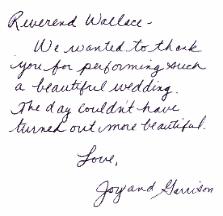 Reverend Wallace -
We wanted to thank
you for performing such
a beautiful wedding.
The day couldn't have
turned out more beautiful.
Love,
Joy and Garrison